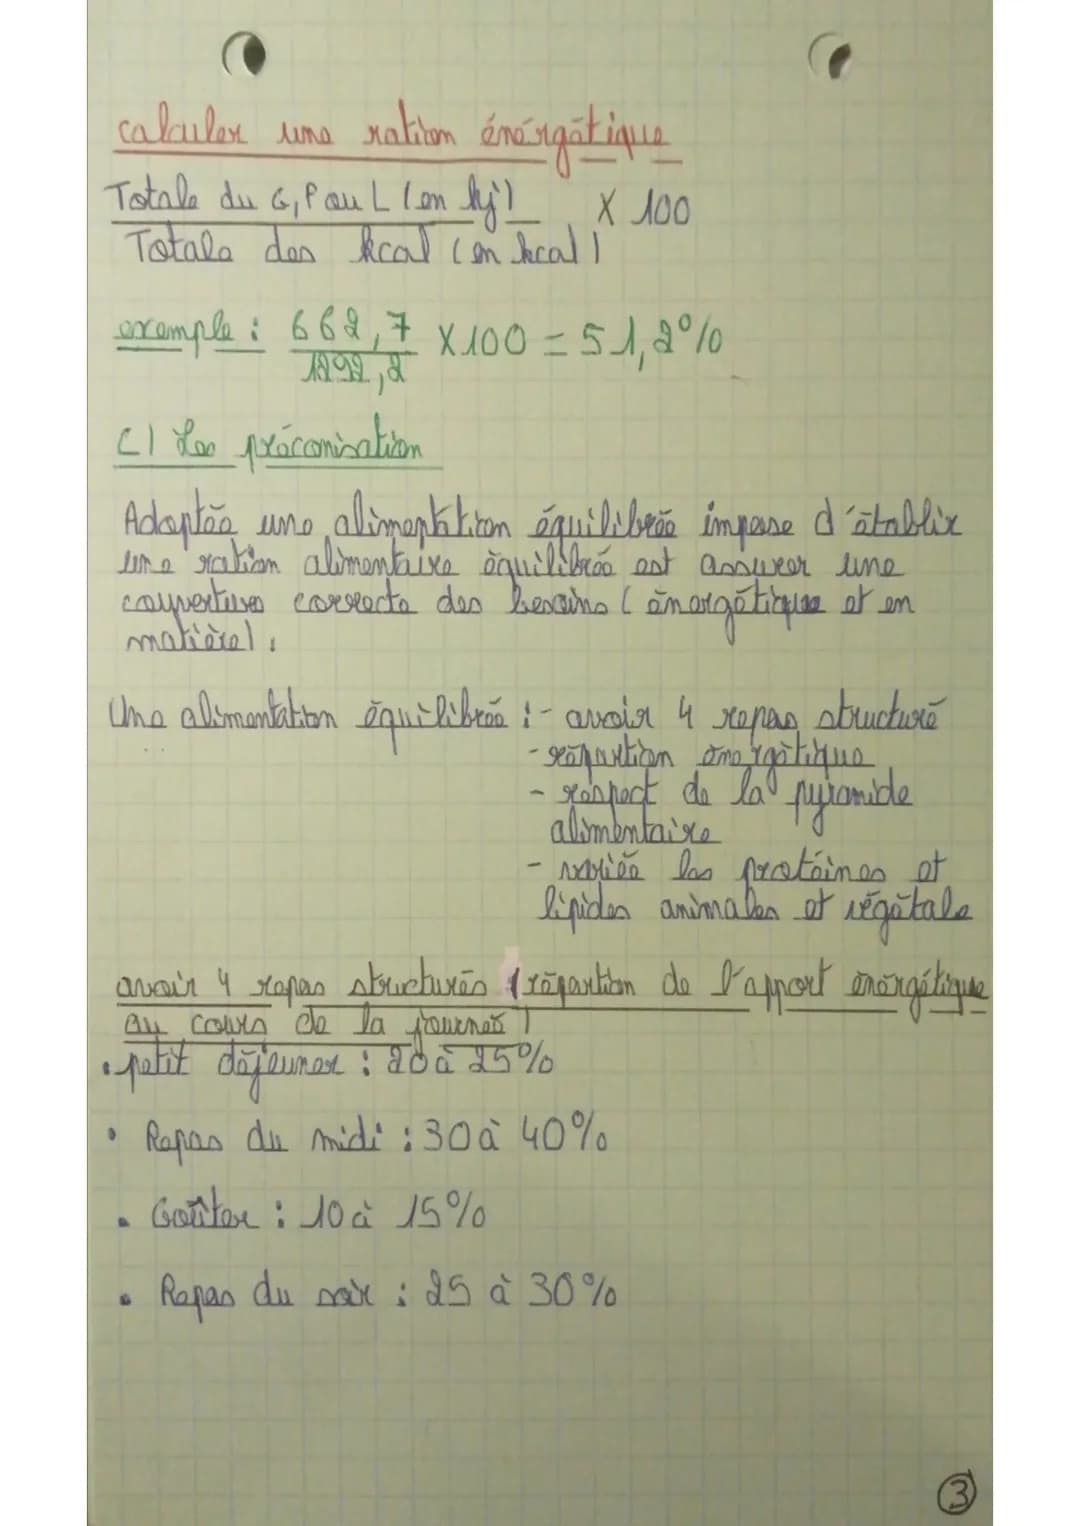 calculer une ration énérgétique
Totale du G, P ou L (en kj) X 100
Totale des kcal (en kcal)
exemple : 662,7 X 100 = 51,2%
1292,2
C) Les préconisation
Adoptée une alimentation équilibrée impose d'établir
une ration alimentaire équilibré est assurer une
couvertures correcte des besoins (énergétiques et en
matière).
Une alimentation équilibrée : - avoir 4 repas structuré
- répartion énergétique
- respect de la pyramide
alimentaire
- variée les protéines et
lipides animales et végétale
avoir 4 repas structurés (répartion de l'apport énérgétique
au cours de la journeé)
• petit déjeuner : 20 à 25%
• Repas du midi : 30 à 40%
• Goûter : 10 à 15%
• Repas du soir : 25 à 30%
3